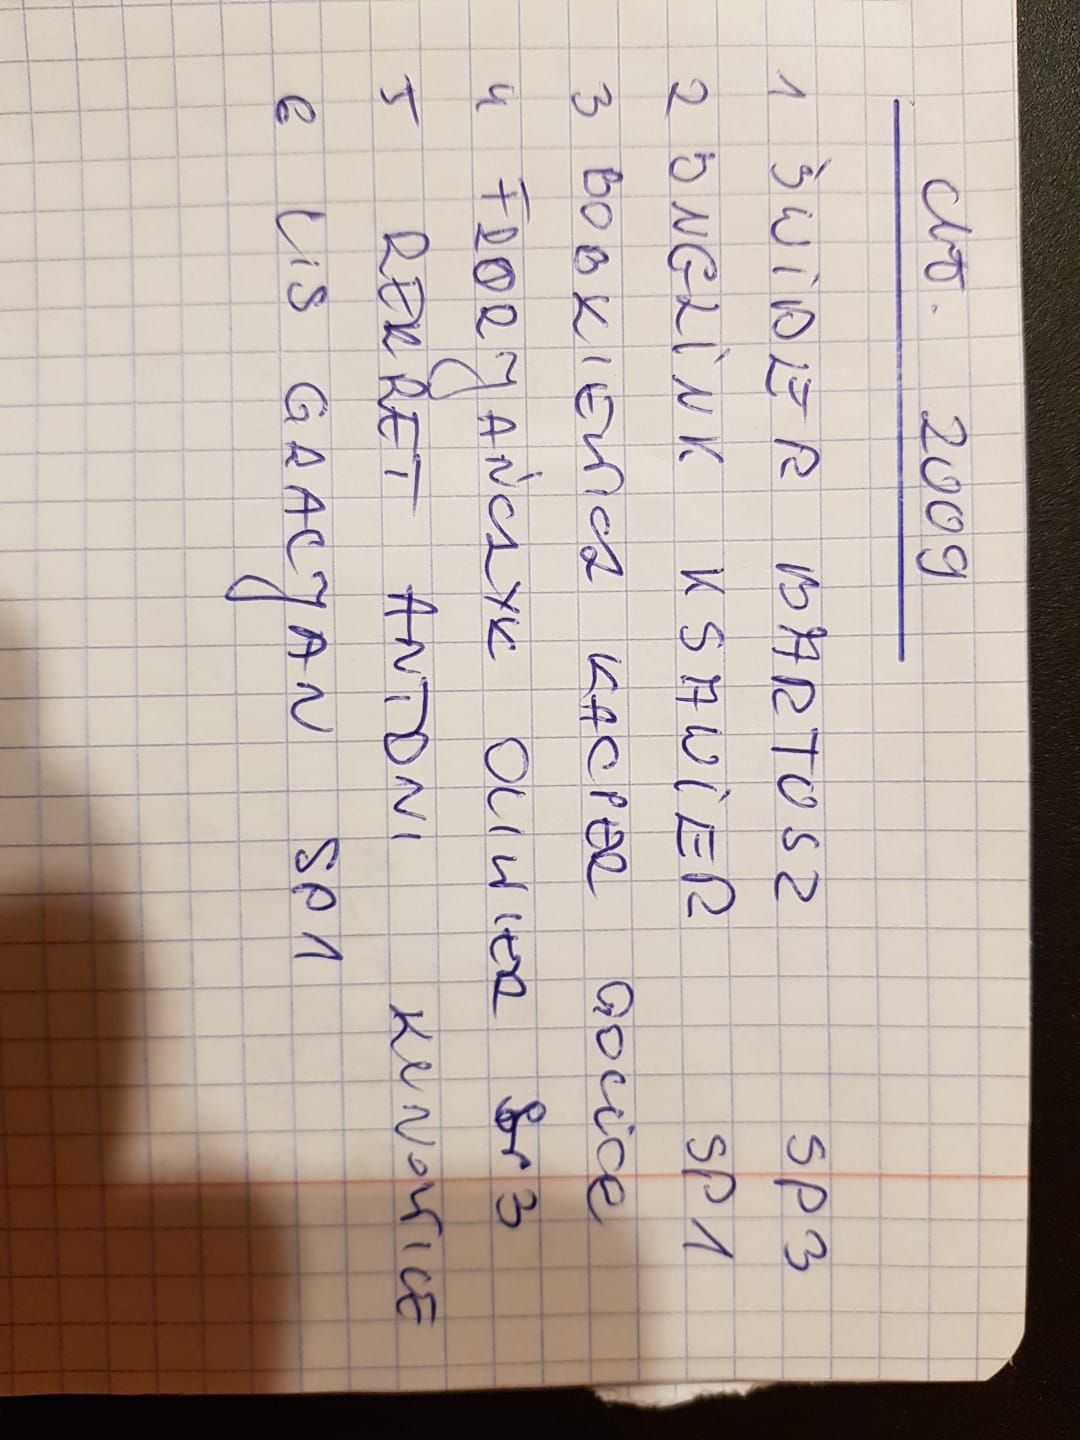 chł. 2009
1 ŚWIDER BARTOSZ SP3
2 KSAWIER SP1
3 BOBKIEWICZ KACPER GOCICE
4 FLORJAŃCZYK OLIWIER SP3
5 REKRET ANTONI KUNOWICE
6 LIS GRACJAN SP1